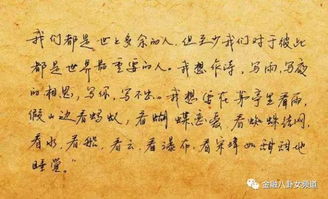 我们都是世上多余的人，但至少我们对于彼此
都是世界最重要的人。我想作诗，写雨，写夜
的相思，写你，写不出。我想要在茅亭里看雨，
假山边看蚂蚁，看蝴蝶恋爱，看蜘蛛结网，
看水，看船，看云，看瀑布，看宋清如甜甜地
睡觉。
金融八卦女频道